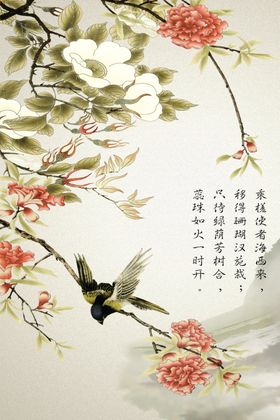 乘槎使者海西来，
移得珊瑚汉苑栽；
只待绿荫芳树合，
蕊珠如火一时开。